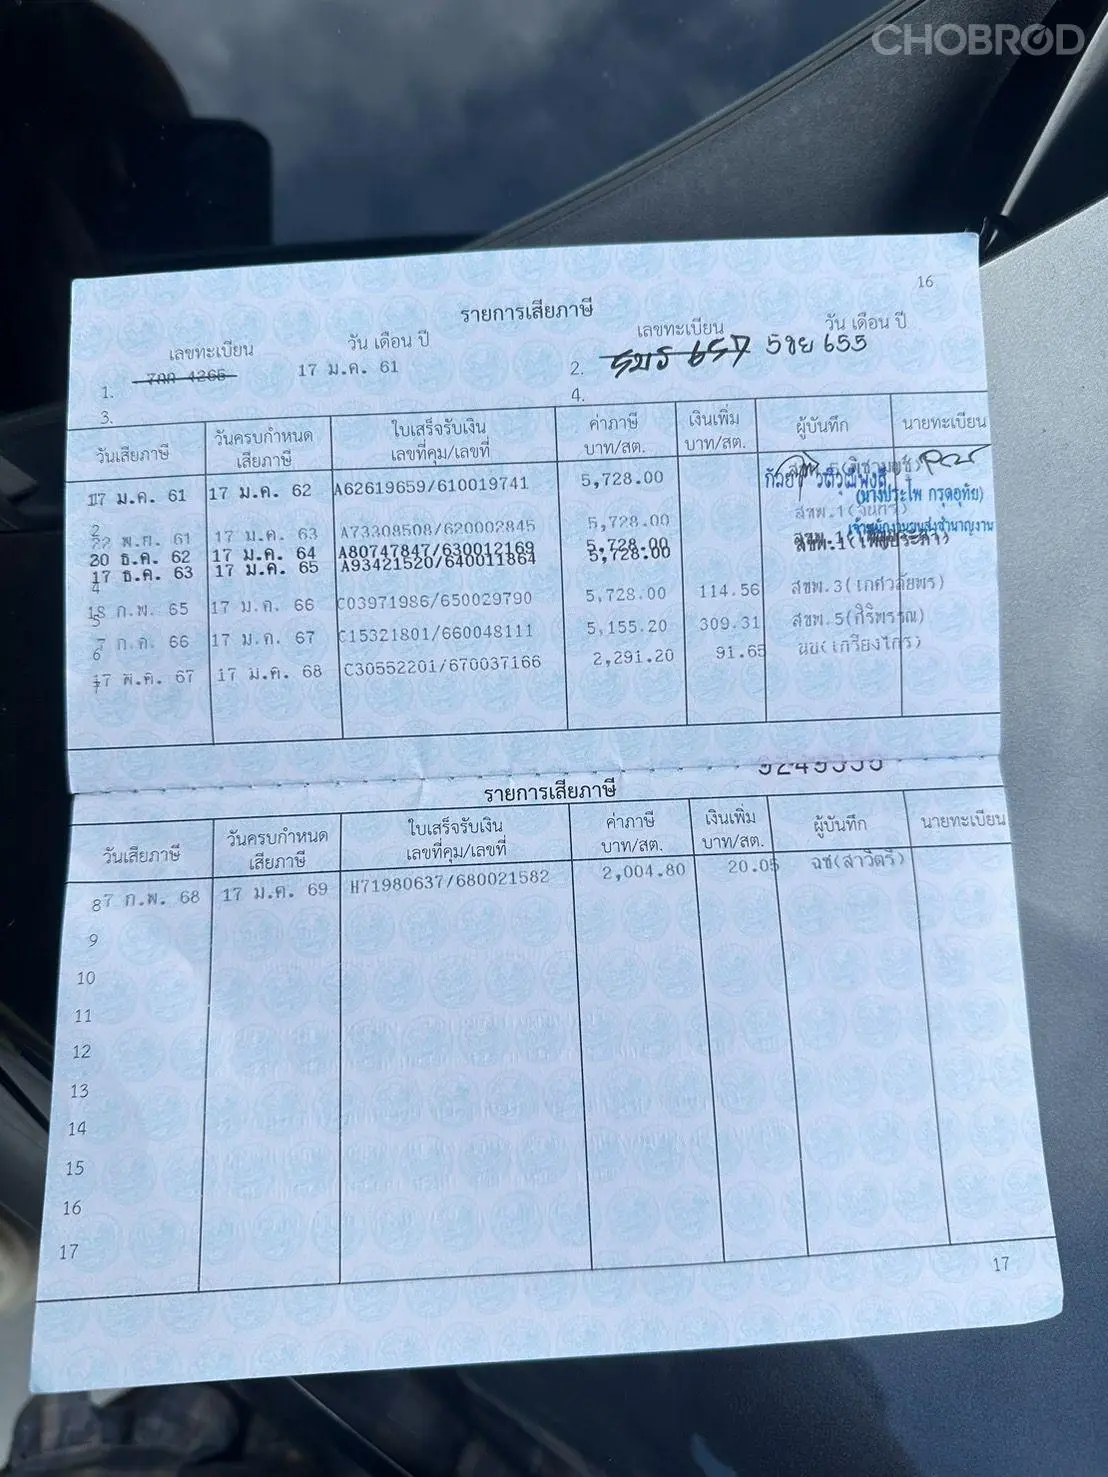 CHOBROD
16
รายการเสียภาษี
เลขทะเบียน วัน เดือน ปี เลขทะเบียน วัน เดือน ปี
1. 7กก 4265 17 ม.ค. 61 2. 657 5ขย 655
3. 4.
วันเสียภาษี วันครบกำหนดเสียภาษี ใบเสร็จรับเงิน เลขที่คุม/เลขที่ ค่าภาษี บาท/สต. เงินเพิ่ม บาท/สต. ผู้บันทึก นายทะเบียน
1 17 ม.ค. 61 17 ม.ค. 62 A62619659/610019741 5,728.00
(นางประไพ กรุดอุทัย)
2 22 พ.ย. 61 17 ม.ค. 63 A73308508/620002845 5,728.00 สขพ.1(จันทร์)
เจ้าพนักงานขนส่งชำนาญงาน
30 ธ.ค. 62 17 ม.ค. 64 A80747847/630012169 5,728.00
17 ธ.ค. 63 17 ม.ค. 65 A93421520/640011864 5,728.00
4
18 ก.พ. 65 17 ม.ค. 66 C03971986/650029790 5,728.00 114.56 สขพ.3(เกศวลัยพร)
5
7 ก.ค. 66 17 ม.ค. 67 C15321801/660048111 5,155.20 309.31 สขพ.5(ศิริพรรณ)
6
17 พ.ค. 67 17 ม.ค. 68 C30552201/670037166 2,291.20 91.65 นข(เกรียงไกร)
7
รายการเสียภาษี
วันเสียภาษี วันครบกำหนดเสียภาษี ใบเสร็จรับเงิน เลขที่คุม/เลขที่ ค่าภาษี บาท/สต. เงินเพิ่ม บาท/สต. ผู้บันทึก นายทะเบียน
8 7 ก.พ. 68 17 ม.ค. 69 H71980637/680021582 2,004.80 20.05 ฉช(สาวิตรี)
9
10
11
12
13
14
15
16
17
17